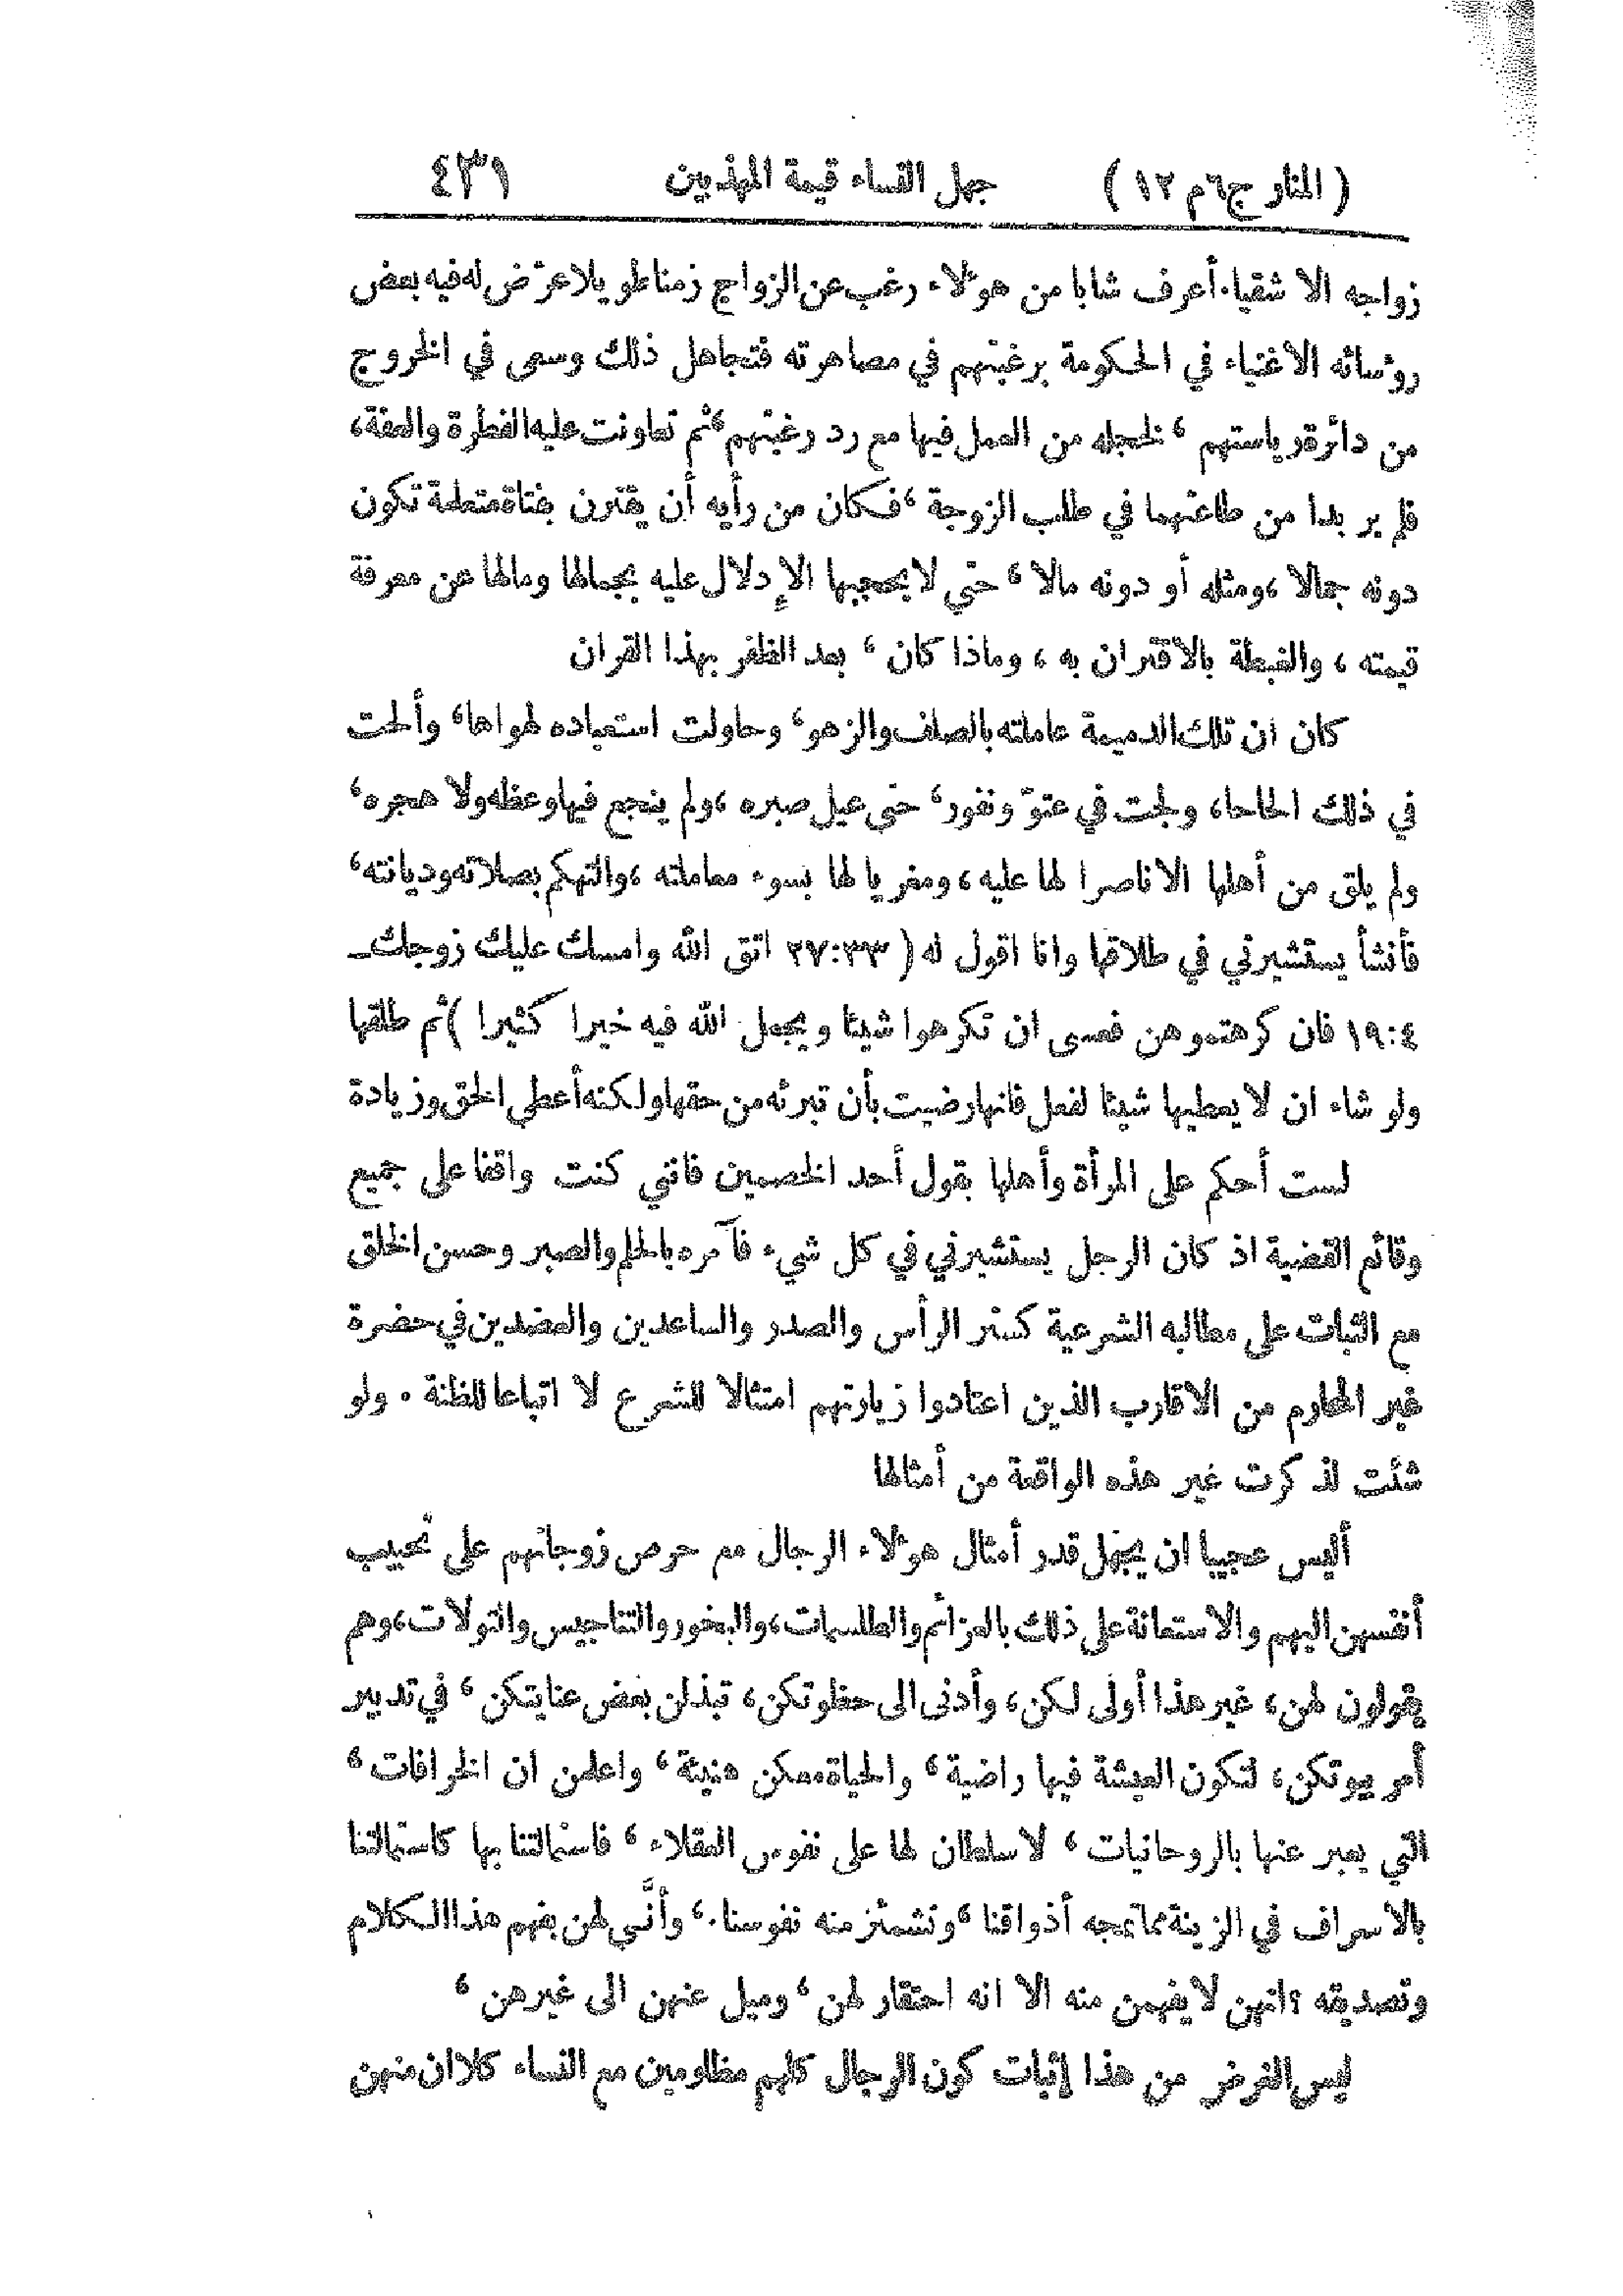 ( المنار ج٦ م ١٢ ) جهل النساء قيمة المهذبين ٤٣١
زواجه الا شقيا. أعرف شابا من هؤلاء رغب عن الزواج زمنا طويلا عرّض له فيه بعض
رؤسائه الاغنياء في الحكومة برغبتهم في مصاهرته فتجاهل ذلك وسعى في الخروج
من دائرة رياستهم ، لخجله من العمل فيها مع رد رغبتهم ، ثم تعاونت عليه الفطرة والعفة ،
فلم ير بدا من طاعتهما في طلب الزوجة ، فكان من رأيه أن يقترن بفتاة متعلمة تكون
دونه جمالا ، ومثله أو دونه مالا ، حتى لا يحجبها الإدلال عليه بجمالها ومالها عن معرفة
قيمته ، والغبطة بالاقتران به ، وماذا كان ، بعد الظفر بهذا القران
كان ان تلك الدميمة عاملته بالصلف والزهو ، وحاولت استعباده لهواها ، وألحت
في ذلك الحاحا ، ولجت في عتوّ ونفور ، حتى عيل صبره ، ولم ينجع فيها وعظه ولا هجره ،
ولم يلق من أهلها الا ناصرا لها عليه ، ومغريا لها بسوء معاملته ، والتهكم بصلاته وديانته ،
فأنشأ يستشيرني في طلاقها وانا اقول له ( ٣٣:٢٧ اتق الله وامسك عليك زوجك ــ
٤:١٩ فان كرهتموهن فعسى ان تكرهوا شيئا ويجعل الله فيه خيرا كثيرا ) ثم طلقها
ولو شاء ان لا يعطيها شيئا لفعل فانها رضيت بأن تبرئه من حقها ولكنه أعطى الحق وزيادة
لست أحكم على المرأة وأهلها بقول أحد الخصمين فانني كنت واقفا على جميع
وقائع القضية اذ كان الرجل يستشيرني في كل شيء فآمره بالحلم والصبر وحسن الخلق
مع الثبات على مطالبه الشرعية كستر الرأس والصدر والساعدين والعضدين في حضرة
غير المحارم من الاقارب الذين اعتادوا زيارتهم امتثالا للشرع لا اتباعا للظنة . ولو
شئت لذكرت غير هذه الواقعة من أمثالها
أليس عجيبا ان يجهل قدر أمثال هؤلاء الرجال مع حرص زوجاتهم على تحبيب
أنفسهن اليهم والاستعانة على ذلك بالعزائم والطلسمات ، والبخور والتناجيس والتولات ، وهم
يقولون لهن ، غير هذا أولى لكن ، وأدنى الى حظوتكن ، تبذلن بعض عنايتكن ، في تدبير
أمر بيوتكن ، لتكون العيشة فيها راضية ، والحياة معكن هنيئة ، واعلمن ان الخرافات ،
التي يعبر عنها بالروحانيات ، لا سلطان لها على نفوس العقلاء ، فاستمالتنا بها كاستمالتنا
بالاسراف في الزينة مما تمجه أذواقنا ، وتشمئز منه نفوسنا . ، وأنَّى لهن بفهم هذا الكلام
وتصديقه ؟ انهن لا يفهمن منه الا انه احتقار لهن ، وميل عنهن الى غيرهن ،
ليس الغرض من هذا إثبات كون الرجال كلهم مظلومين مع النساء كلا ان منهن